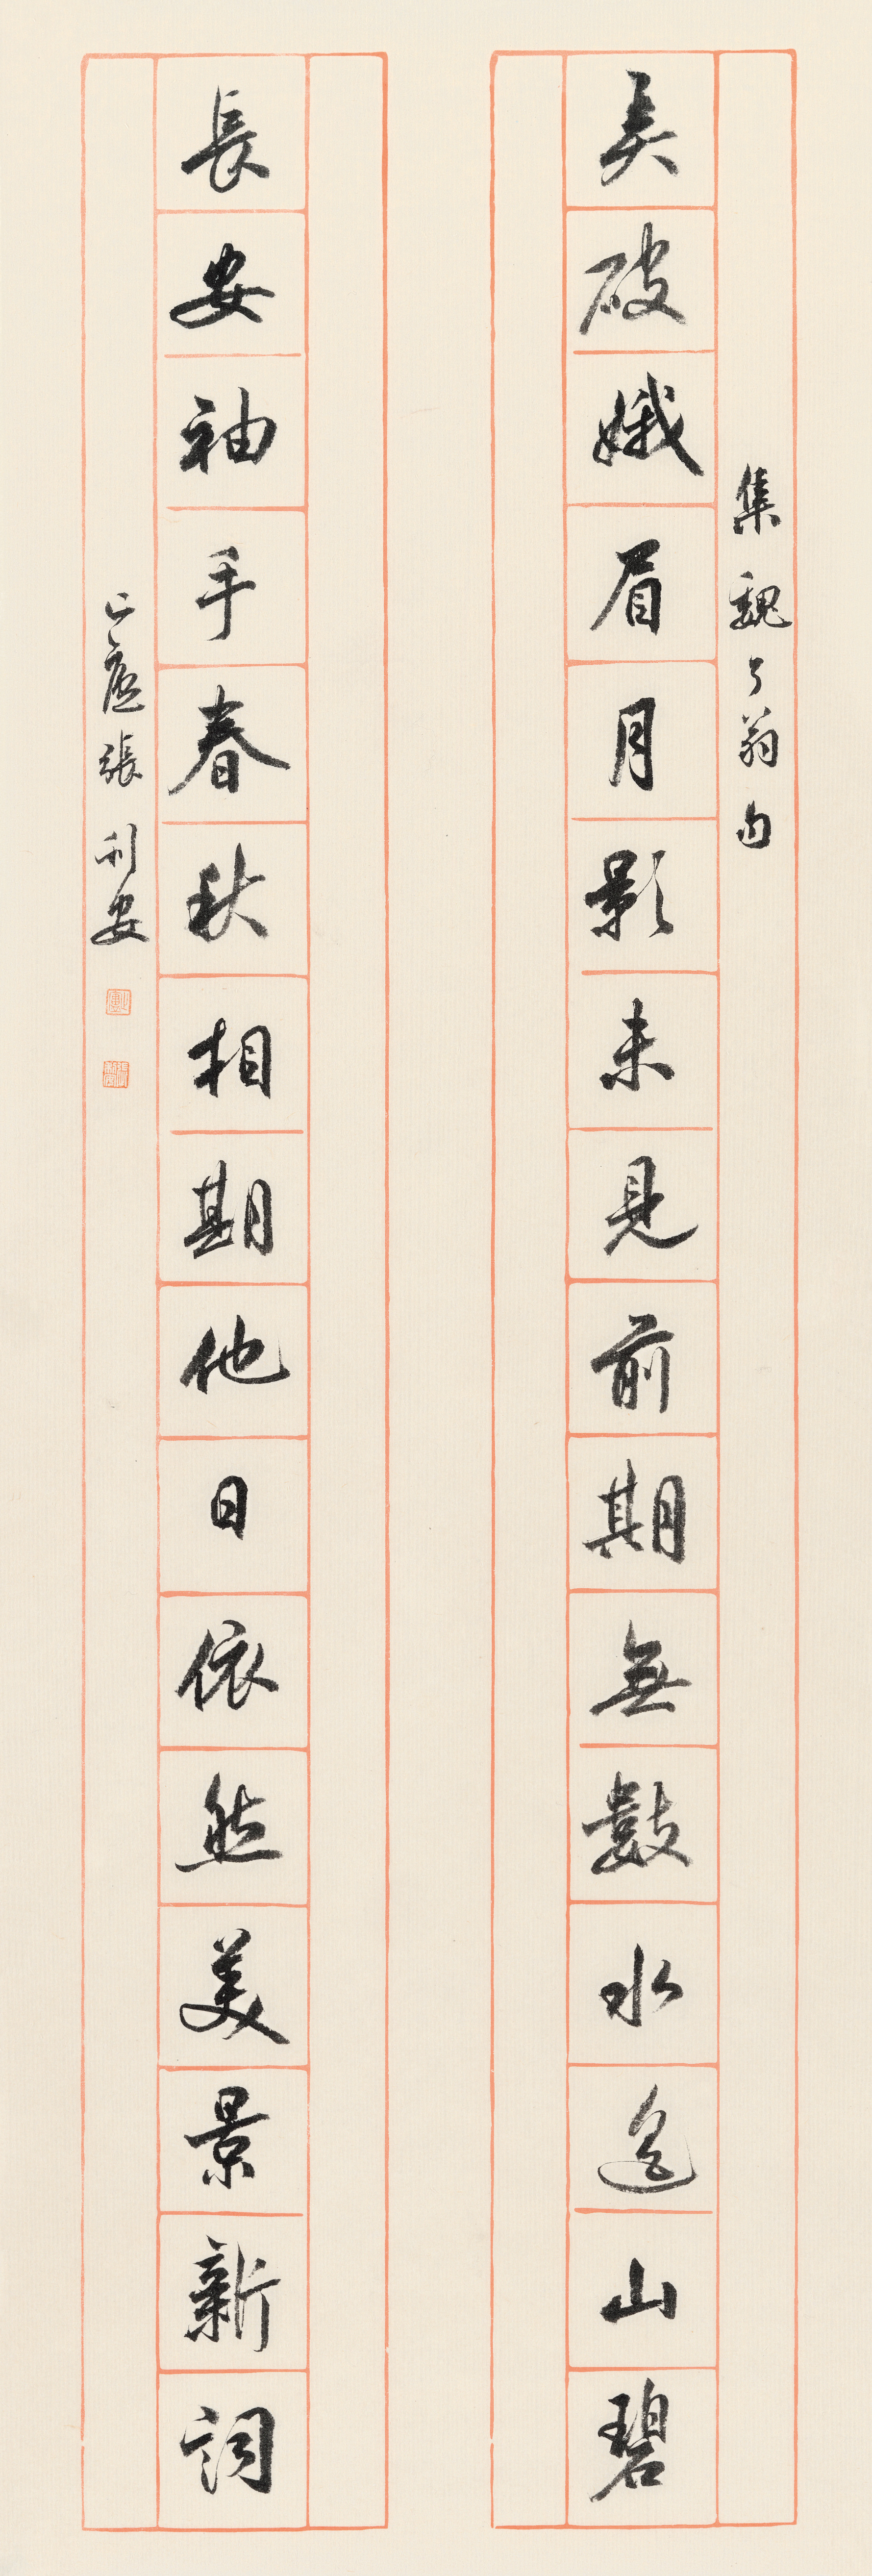 集魏了翁句
破娥眉月影未見前期無數水遙山碧
長安袖手春秋相期他日依然美景新詞
張利安